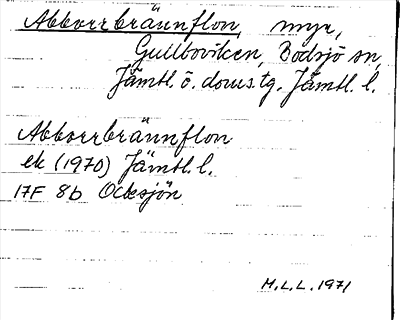 Abborrbrännflon, myr,
Gullboviken, Bodsjö sn,
Jämtl. ö. doms.tg. Jämtl. l.
Abborrbrännflon
ek (1970) Jämtl. l.
17F 8b Ocksjön
M.L.L. 1971